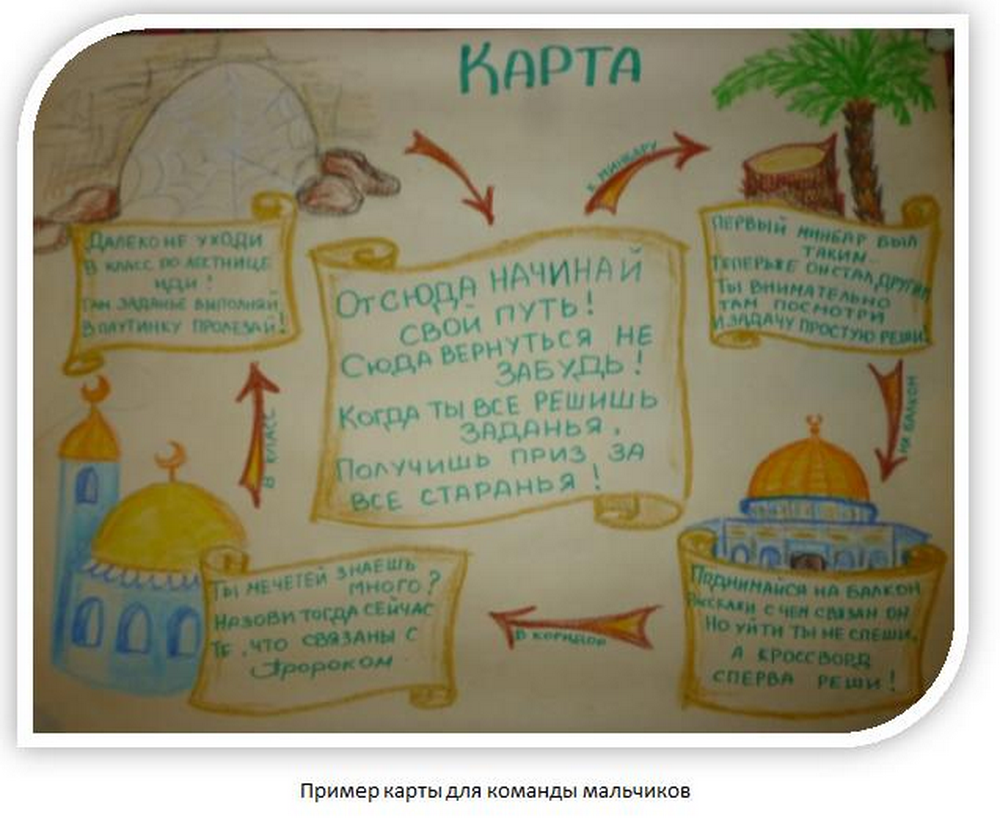 КАРТА
ОТСЮДА НАЧИНАЙ
СВОЙ ПУТЬ!
СЮДА ВЕРНУТЬСЯ НЕ
ЗАБУДЬ!
КОГДА ТЫ ВСЕ РЕШИШЬ
ЗАДАНЬЯ,
ПОЛУЧИШЬ ПРИЗ ЗА
ВСЕ СТАРАНЬЯ!
К МИНБАРУ
ПЕРВЫЙ МИНБАР БЫЛ
ТАКИМ...
ТЕПЕРЬ ЖЕ ОН СТАЛ ДРУГИМ
ТЫ ВНИМАТЕЛЬНО
ТАМ ПОСМОТРИ
И ЗАДАЧУ ПРОСТУЮ РЕШИ
НА БАЛКОН
ПОДНИМАЙСЯ НА БАЛКОН
РАССКАЖИ С ЧЕМ СВЯЗАН ОН
НО УЙТИ ТЫ НЕ СПЕШИ,
А КРОССВОРД
СПЕРВА РЕШИ!
В КОРИДОР
ТЫ МЕЧЕТЕЙ ЗНАЕШЬ
МНОГО?
НАЗОВИ ТОГДА СЕЙЧАС
ТЕ, ЧТО СВЯЗАНЫ С
ПРОРОКОМ
В КЛАСС
ДАЛЕКО НЕ УХОДИ
В КЛАСС ПО ЛЕСТНИЦЕ
ИДИ!
ТАМ ЗАДАНЬЕ ВЫПОЛНЯЙ
В ПАУТИНКУ ПРОЛЕЗАЙ!
Пример карты для команды мальчиков